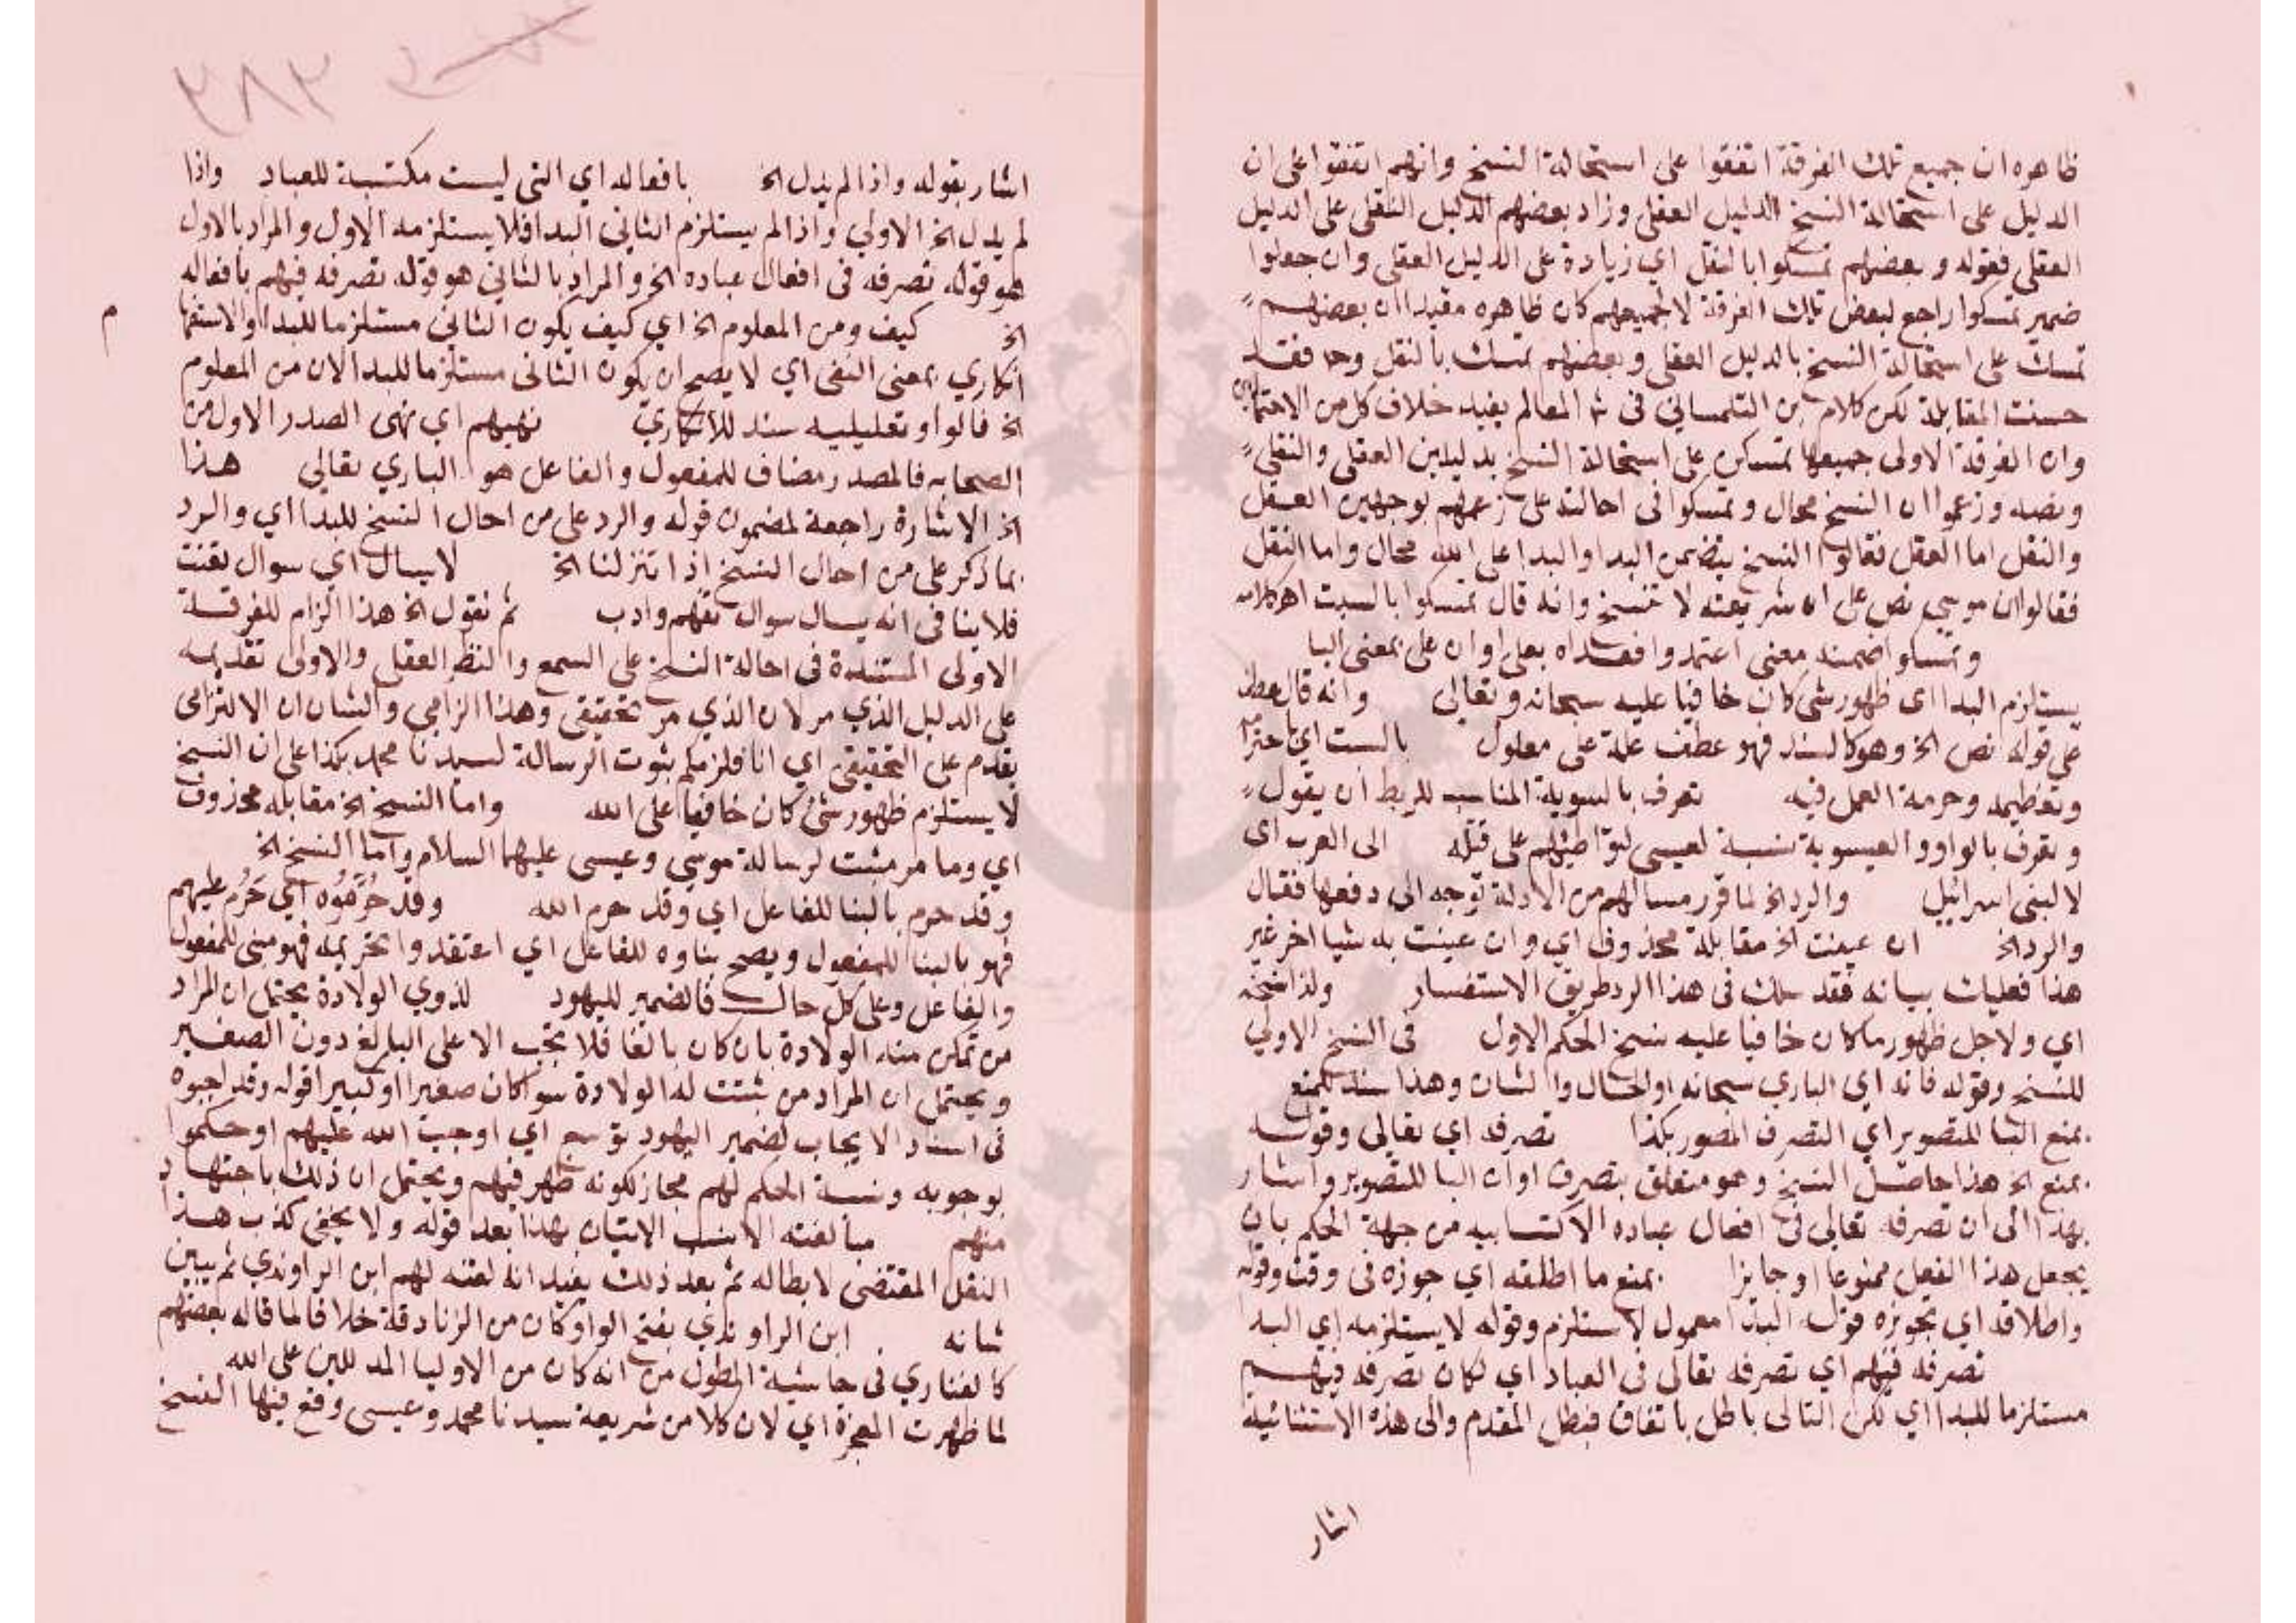 ظاهره ان جميع تلك الفرقة اتفقوا على استحالة النسخ وانهم اتفقوا على ان
الدليل على استحالة النسخ الدليل العقلي وزاد بعضهم الدليل النقلي على الدليل
العقلي فقوله وبعضهم تمسكوا بالنقل اي زيادة على الدليل العقلي وان جعلوا
ضمير تمسكوا راجع لبعض تلك الفرقة لا لجميعهم كان ظاهره مفيدا ان بعضهم
تمسك على استحالة النسخ بالدليل العقلي وبعضهم تمسك بالنقل وحد فقد
حسنت المقابلة لكن كلام ابن التلمساني في ش المعالم يفيد خلاف كل من الاحتمالين
وان الفرقة الاولى جميعها تمسكن على استحالة النسخ بدليلين العقلي والنقلي
ونصه وزعموا ان النسخ محال وتمسكوا في احالته على زعمهم بوجهين العقل
والنقل اما العقل فقالوا النسخ يتضمن البدا والبدا على الله محال واما النقل
فقالوا ان موسي نص على ان شريعته لا تنسخ وانه قال تمسكوا بالسبت اهـ كلامه
وتمسكوا ضمنه معنى اعتمدوا فعداه بعلى او ان على بمعنى البا
يستلزم البدا اى ظهور شي كان خافيا عليه سبحانه وتعالى وانه قال عطف
على قوله نص الخ وهو كالسند فهو عطف علة على معلول بالسبت اي احترامه
وتعظيمه وحرمة العمل فيه تعرف بالسوية المناسب للربط ان يقول
وتعرف بالواو والعيسوية نسبة لعيسى لتواطئهم على قتله الى العرب اى
لا لبنى اسرائيل والرد الخ لما قرر مسالهم من الادلة توجه الى دفعها فقال
والرد الخ ان عينت الخ مقابله محذوف اي وان عينت به شيا اخر غير
هذا فعليك ببيانه فقد سلك في هذا الرد طريق الاستفسار ولذا نسخه
اي ولاجل ظهور ما كان خافيا عليه نسخ الحكم الاول فى النسخ الاولي
للنسخ وقوله فانه اي الباري سبحانه او الحال والشان وهذا سند للمنع
بمنع البا للتصوير اي التصرف المصور بكذا تصرفه اي تعالى وقوله
بمنع الخ هذا حاصل النسخ وهو متعلق بتصرف او ان البا للتصوير واشار
بهذا الى ان تصرفه تعالى في افعال عباده الاكتسابيه من جهة الحكم بان
يجعل هذا الفعل ممنوعا او جايزا بمنع ما اطلقه اي جوزه فى وقت وقوله
واطلاقه اي تجويزه قوله البدا معمول لاستلزم وقوله لا يستلزمه اي البدا
تصرفه فيهم اي تصرفه تعالى فى العباد اي لكان تصرفه فيهم
مستلزما للبدا اي لكن التالى باطل باتفاق فبطل المقدم والى هذه الاستثنائية
اشار
اشار بقوله واذا لم يدل الخ بافعاله اي التي ليست مكتسبة للعباد واذا
لم يدل الخ الاولي واذا لم يستلزم الثاني البدا فلا يستلزمه الاول والمراد بالاول
هو قوله تصرفه في افعال عباده الخ والمراد بالثاني هو قوله تصرفه فيهم بافعاله
الخ كيف ومن المعلوم الخ اي كيف يكون الثاني مستلزما للبدا والاستفها م
انكاري بمعنى النفى اي لا يصح ان يكون الثانى مستلزما للبدا لان من المعلوم
الخ فالواو تعليليه سند للانكاري نهيهم اي نهى الصدر الاول من
الصحابه فالمصدر مضاف للمفعول والفاعل هو الباري تعالى هذا
الخ الاشارة راجعة لمضمون قوله والرد على من احال النسخ للبدا اي والرد
بما ذكر على من احال النسخ اذا تنزلنا الخ لا يسال اي سوال تعنت
فلا ينافى انه يسال سوال تفهم وادب ثم نقول الخ هذا الزام للفرقة
الاولى المستندة فى احالة النسخ على السمع والنظر العقلي والاولى تقديمه
على الدليل الذي مر لان الذي مر تحقيقى وهذا الزامي والشان ان الالتزامى
يقدم على التحقيقي اي انا فلزمكم بثبوت الرسالة لسيدنا محمد بكذا على ان النسخ
لا يستلزم ظهور شئ كان خافيا على الله واما النسخ الخ مقابله محذوف
اي وما مر مثبت لرسالة موسي وعيسى عليهما السلام واما النسخ الخ
وقد حرم بالبنا للفاعل اي وقد حرم الله وقد حُرِّمُوه اي حَرُم عليهم
فهو بالبنا للمفعول ويصح بناوه للفاعل اي اعتقدوا تحريمه فهو مبنى للمفعول
والفاعل وعلى كل حال فالضمير لليهود لذوي الولادة يحتمل ان المراد
من تمكن منه الولادة بان كان بالغا فلا تجب الا على البالغ دون الصغير
ويحتمل ان المراد من ثبتت له الولادة سوا كان صغيرا او كبيرا قوله وقد اوجبوه
فى اسناد الايجاب لضمير اليهود توسع اي اوجب الله عليهم او حكموا
بوجوبه ونسبة الحكم لهم مجاز لكونه ظهر فيهم ويحتمل ان ذلك باجتهاد
منهم مبالغته الانسب الاتيان بهذا بعد قوله ولا يخفى كذب هذا
النقل المقتضى لابطاله ثم بعد ذلك يفيد انه لفته لهم ابن الراوندي ثم يبين
شانه ابن الراوندي بفتح الواو كان من الزنادقة خلافا لما قاله بعضهم
كالفناري فى حاشية المطول من انه كان من الاوليا المدللين على الله
لما ظهرت المعجزة اي لان كلا من شريعة سيدنا محمد وعيسى وقع فيها النسخ